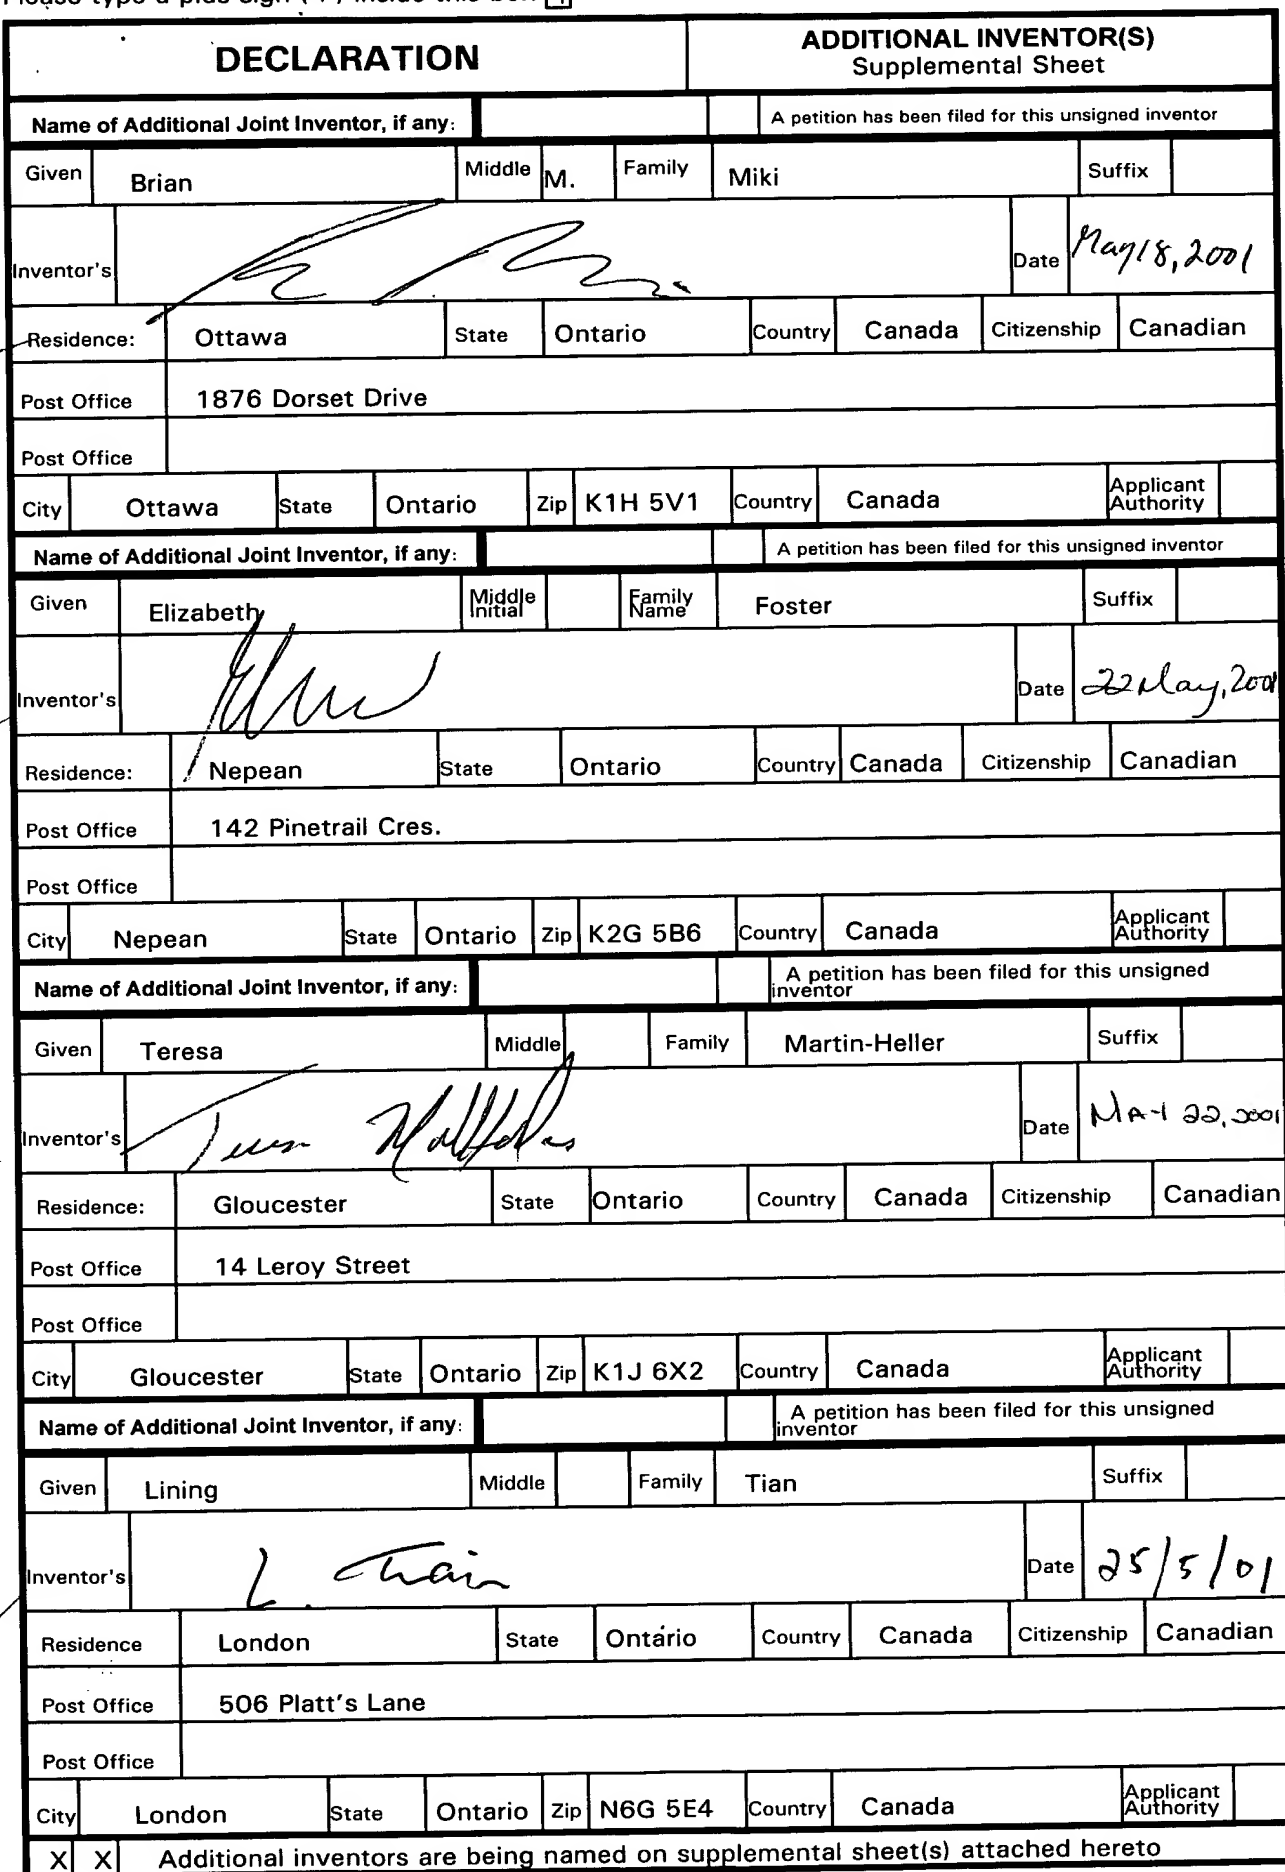 DECLARATION ADDITIONAL INVENTOR(S)
Supplemental Sheet
Name of Additional Joint Inventor, if any: A petition has been filed for this unsigned inventor
Given Brian Middle M. Family Miki Suffix
Inventor's Date May 18, 2001
Residence: Ottawa State Ontario Country Canada Citizenship Canadian
Post Office 1876 Dorset Drive
Post Office
City Ottawa State Ontario Zip K1H 5V1 Country Canada Applicant Authority
Name of Additional Joint Inventor, if any: A petition has been filed for this unsigned inventor
Given Elizabeth Middle Initial Family Name Foster Suffix
Inventor's Date 22 May, 2001
Residence: Nepean State Ontario Country Canada Citizenship Canadian
Post Office 142 Pinetrail Cres.
Post Office
City Nepean State Ontario Zip K2G 5B6 Country Canada Applicant Authority
Name of Additional Joint Inventor, if any: A petition has been filed for this unsigned inventor
Given Teresa Middle Family Martin-Heller Suffix
Inventor's Date MAY 22, 2001
Residence: Gloucester State Ontario Country Canada Citizenship Canadian
Post Office 14 Leroy Street
Post Office
City Gloucester State Ontario Zip K1J 6X2 Country Canada Applicant Authority
Name of Additional Joint Inventor, if any: A petition has been filed for this unsigned inventor
Given Lining Middle Family Tian Suffix
Inventor's L. Date 25/5/01
Residence London State Ontario Country Canada Citizenship Canadian
Post Office 506 Platt's Lane
Post Office
City London State Ontario Zip N6G 5E4 Country Canada Applicant Authority
X X Additional inventors are being named on supplemental sheet(s) attached hereto